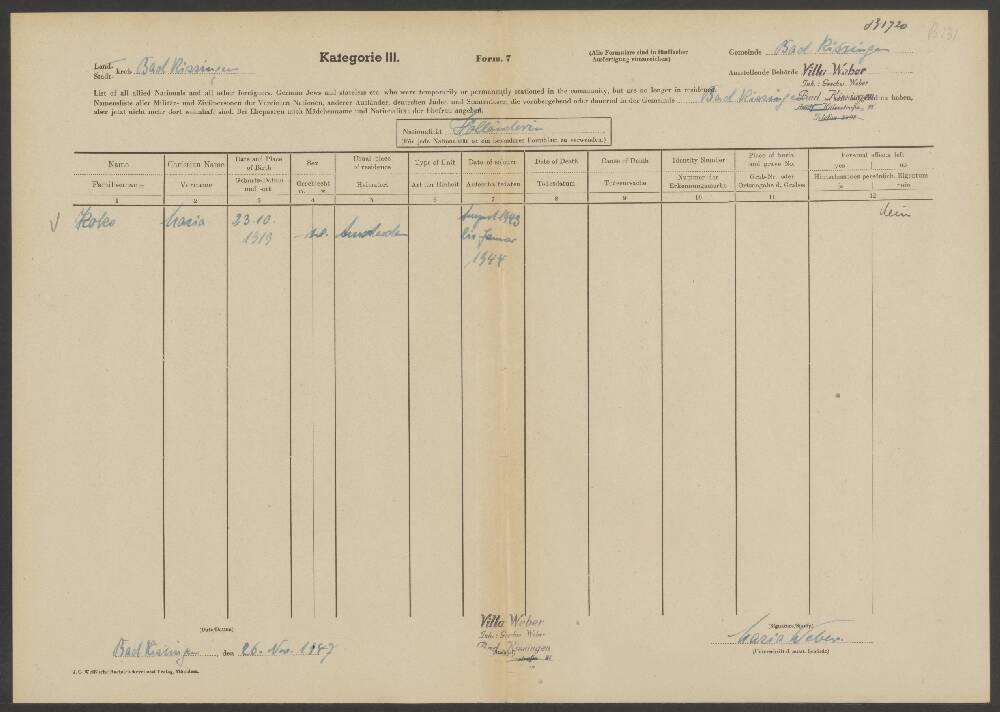 d31720
Land-
Stadt-
kreis Bad Kissingen
Kategorie III.
Form. 7
(Alle Formulare sind in fünffacher
Ausfertigung einzureichen)
Gemeinde Bad Kissingen
Ausstellende Behörde Villa Weber
Inh.: Geschw. Weber
Bad Kissingen
List of all allied Nationals and all other foreigners, German Jews and stateless etc. who were temporarily or permanently stationed in the community, but are no longer in residence.
Namensliste aller Militär- und Zivilpersonen der Vereinten Nationen, anderer Ausländer, deutschen Juden und Staatenlosen, die vorübergehend oder dauernd in der Gemeinde Bad Kissingen haben,
aber jetzt nicht mehr dort wohnhaft sind. Bei Ehepaaren auch Mädchenname und Nationalität der Ehefrau angeben.
Nationalität Holländerin
(Für jede Nationalität ist ein besonderes Formblatt zu verwenden.)
Name
Christian Name
Date and Place
of Birth
Sex
Usual place
of residence
Type of Unit
Date of sojourn
Date of Death
Cause of Death
Identity Number
Place of burial
and grave No.
Personal effects left
yes | no
Familienname
Vorname
Geburts-Datum
und -ort
Geschlecht
Heimatort
Art der Einheit
Aufenthaltsdaten
Todesdatum
Todesursache
Nummer der
Erkennungsmarke
Grab-Nr. oder
Ortsangabe d. Grabes
Hinterlassenes persönlich. Eigentum
ja | nein
1 2 3 4 5 6 7 8 9 10 11 12
Maria 23.10.
1919
August 1943
bis Januar
1944
Nein
(Date/Datum)
Bad Kissingen, den 26. Nov. 1947
Villa Weber
Inh.: Geschw. Weber
Bad Kissingen
(Signature/Stamp)
Maria Weber
(Unterschrift d. ausst. Behörde)